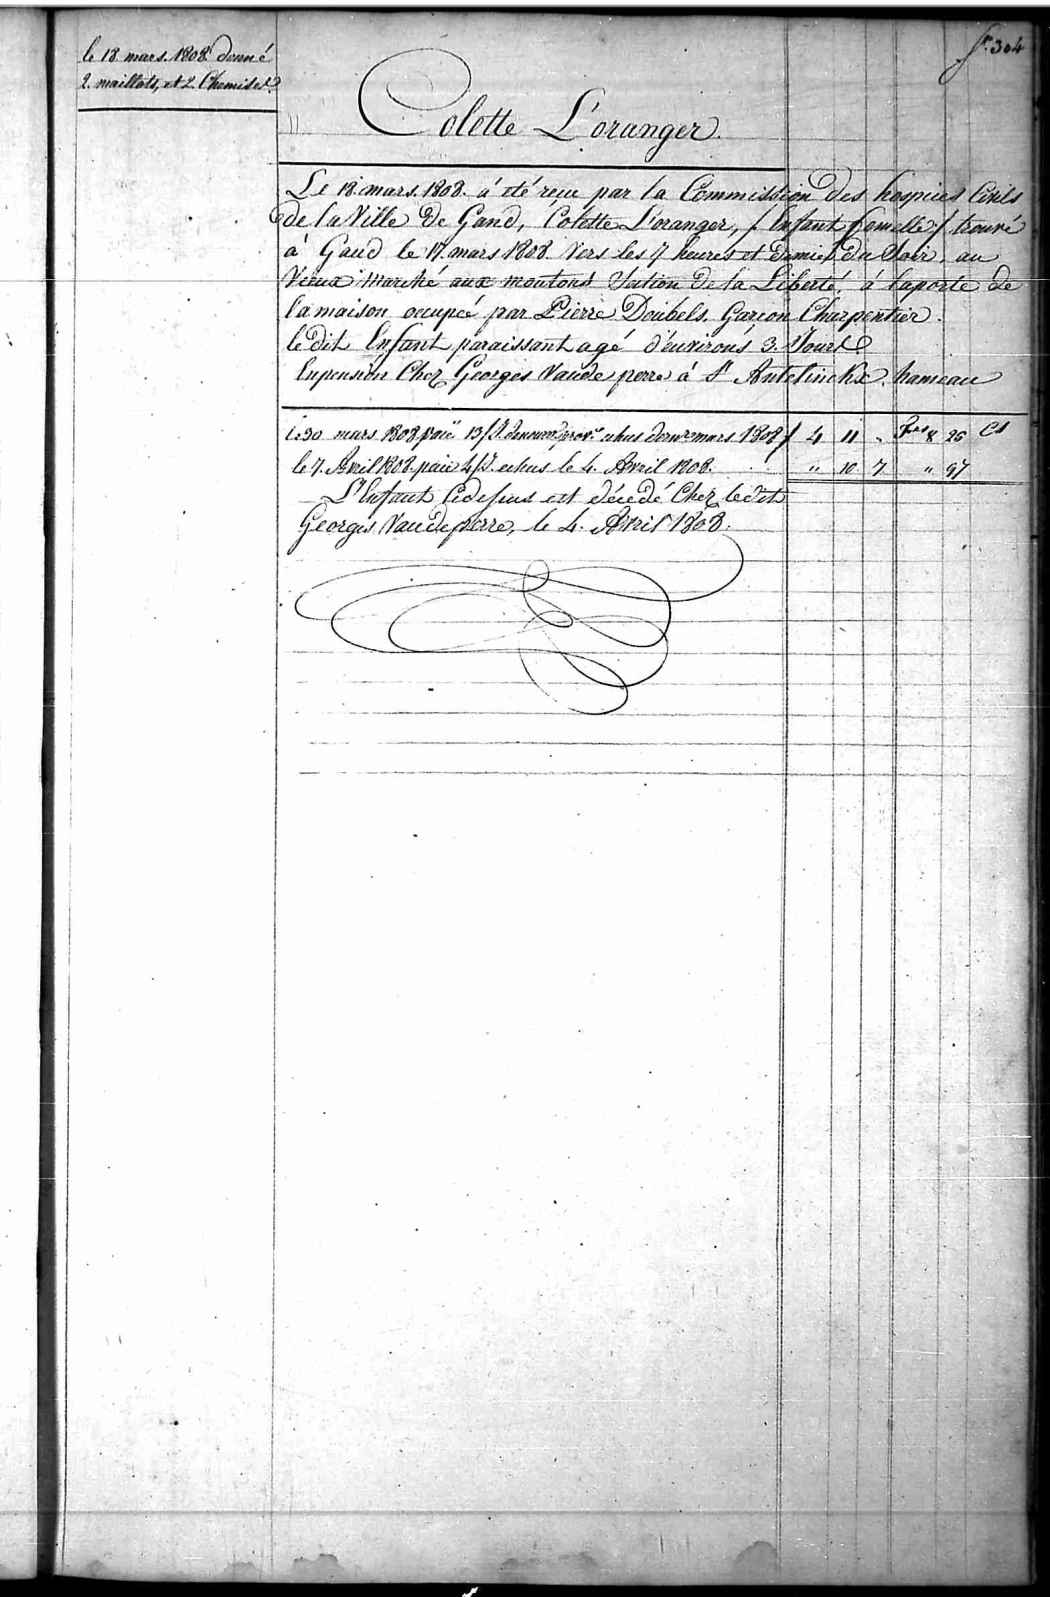 f.° 304
le 18 mars. 1808 donné
2. maillots, et 2. Chemises.
Colette L'oranger.
Le 18. mars. 1808. á été reçue par la Commission des hospices Civils
de la Ville de Gand, Colette L'oranger, /. Enfant femelle / trouvé
à Gand le 17. mars 1808. vers les 7 heures et demie du Soir, au
Vieux Marché aux moutons Section de la Liberté, à laporte de
la maison occupée par Pierre Doubels. Garçon Charpentier.
le dit Enfant paraissant agé d'environs 3. Jours.
Enpension Chez Georges Vande perre à St Antelinckx, hameau
Le 30 mars 1808. paié 13/J. echus mars 1808 / 4 11 „ Frs 8 26 Cs
le 7. Avril 1808. paié 4/J. echus le 4. Avril 1808. „ 10 7 „ 97
L'Enfant Cidessus est décedé Chez ledit
Georges Vandeperre, le 4. Avril 1808.